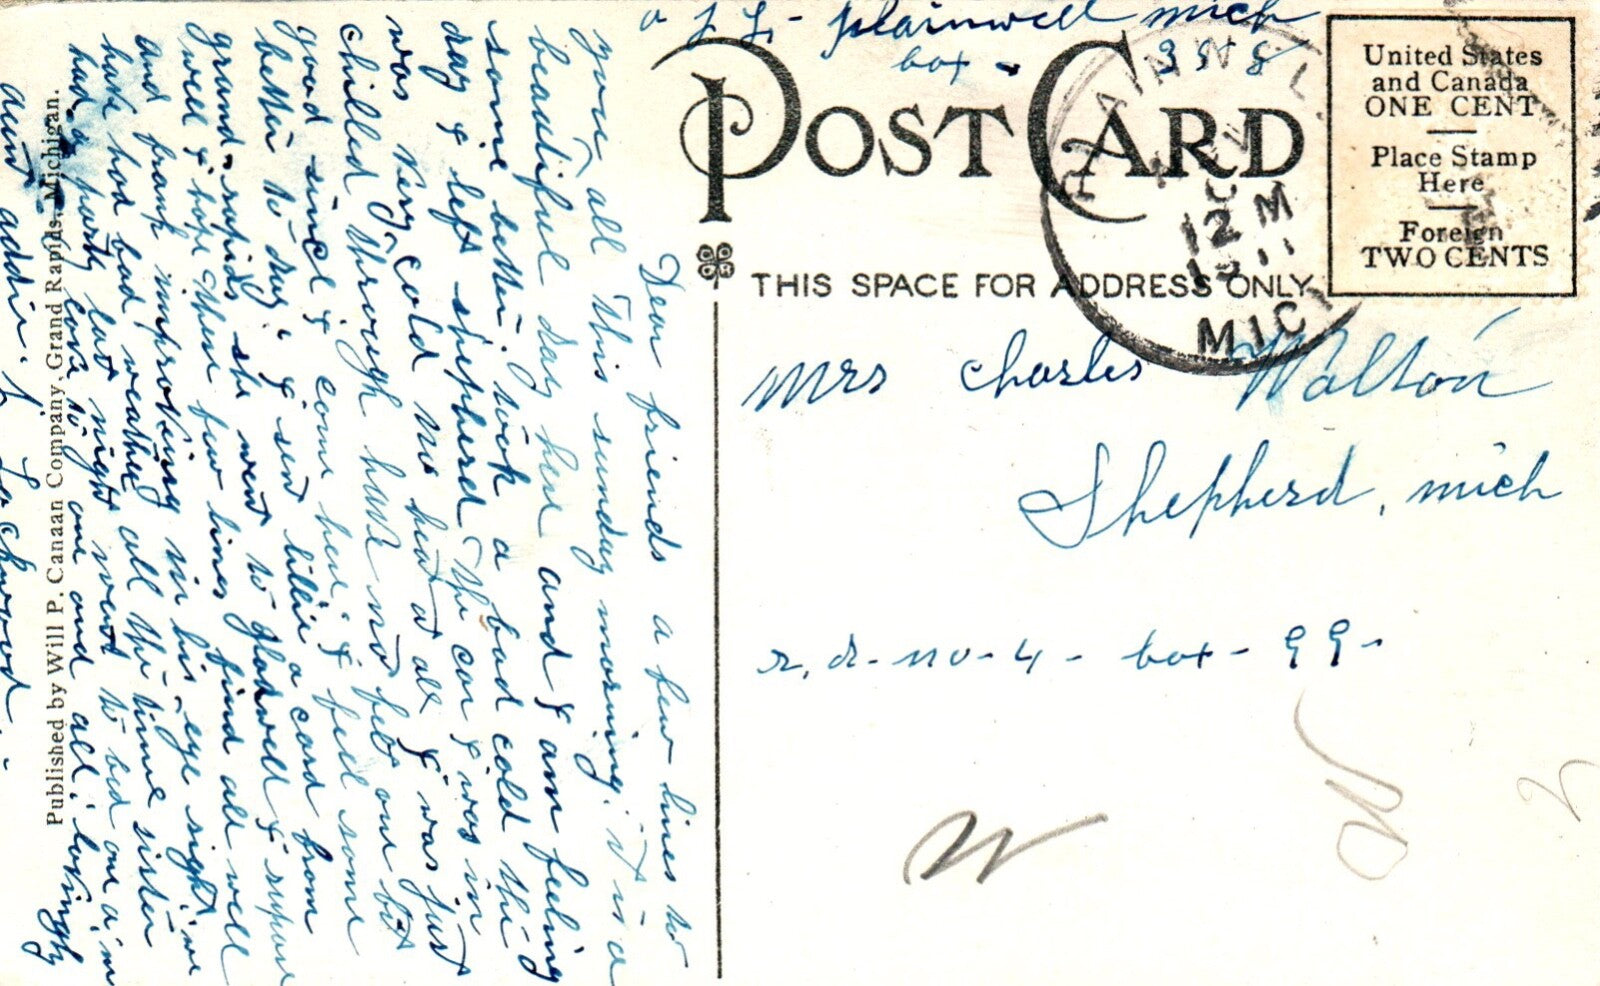 Plainwell mich
box - 398
POST CARD
THIS SPACE FOR ADDRESS ONLY
United States
and Canada
ONE CENT
Place Stamp
Here
Foreign
TWO CENTS
PLAINWELL
12 M
1911
MICH
Mrs Charles Walton
Shepherd, mich
r, d - no - 4 - box - 99 -
Dear friends a few lines to
you all this sunday morning. it is a
beautiful day here and I am feeling
some better. took a bad cold the
day I left shepherd the car I was in
was very cold no heat at all I was just
chilled through have not felt one bit
good since I come here. I feel some
better to day. I sent lillie a card from
grand rapids she went to gladwell I supose
well I hope these few lines find all well
and frank improving in his eye sight. we
have had bad weather all the time sister
had a party last night went to bed one a,m
love to one and all. lovingly
aunt addie. L Lockwood.
Published by Will P. Canaan Company, Grand Rapids, Michigan.